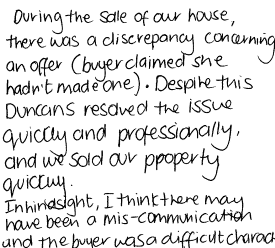 During the sale of our house,
there was a discrepancy concerning
an offer (buyer claimed she
hadn't made one). Despite this
Duncans resolved the issue
quickly and professionally,
and we sold our property
quickly.
In hindsight, I think there may
have been a mis-communication
and the buyer was a difficult charac